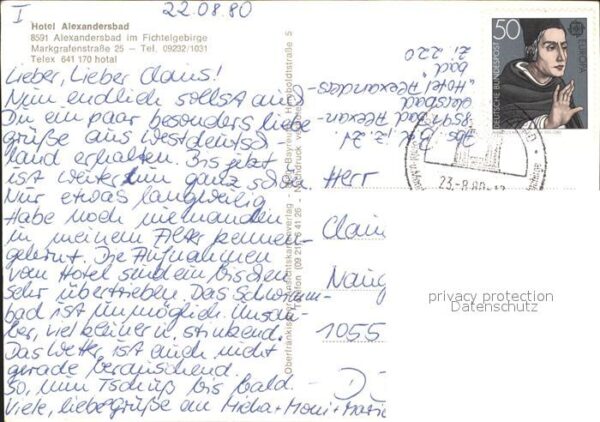 I
22.08.80
Hotel Alexandersbad
8591 Alexandersbad im Fichtelgebirge
Markgrafenstraße 25 – Tel. 09232/1031
Telex 641 170 hotal
Lieber, Lieber Claius!
Nun endlich sollst auch
Du ein paar besonders liebe
grüße aus Westdeutsch-
land erhalten. Bis jetzt
ist weiterhin ganz schön
Nur etwas langweilig
Habe noch niemanden
in meinem Alter kennen-
gelernt. Die Aufnahmen
vom Hotel sind ein bisschen
sehr übertrieben. Das Schwimm-
bad ist unmöglich. Unsau-
ber, viel kleiner u. stinkend.
Das Wetter ist auch nicht
gerade berauschend.
So, nun Tschüß bis bald.
Viele, liebe grüße an Micha + Moni + Mario
Oberfränkischer Ansichtskartenverlag Bayreuth, Humboldtstraße 5
Telefon (09 21) 6 41 26 - Nachdruck verboten
Abs. B. K. z. Zt.
8591 Bad Alexan-
dersbad
"Hotel Alexanders-
bad"
Zi. 220
50
DEUTSCHE BUNDESPOST
EUROPA
23.-8.80
Herr
Clai
Naug
1055
D-
privacy protection
Datenschutz